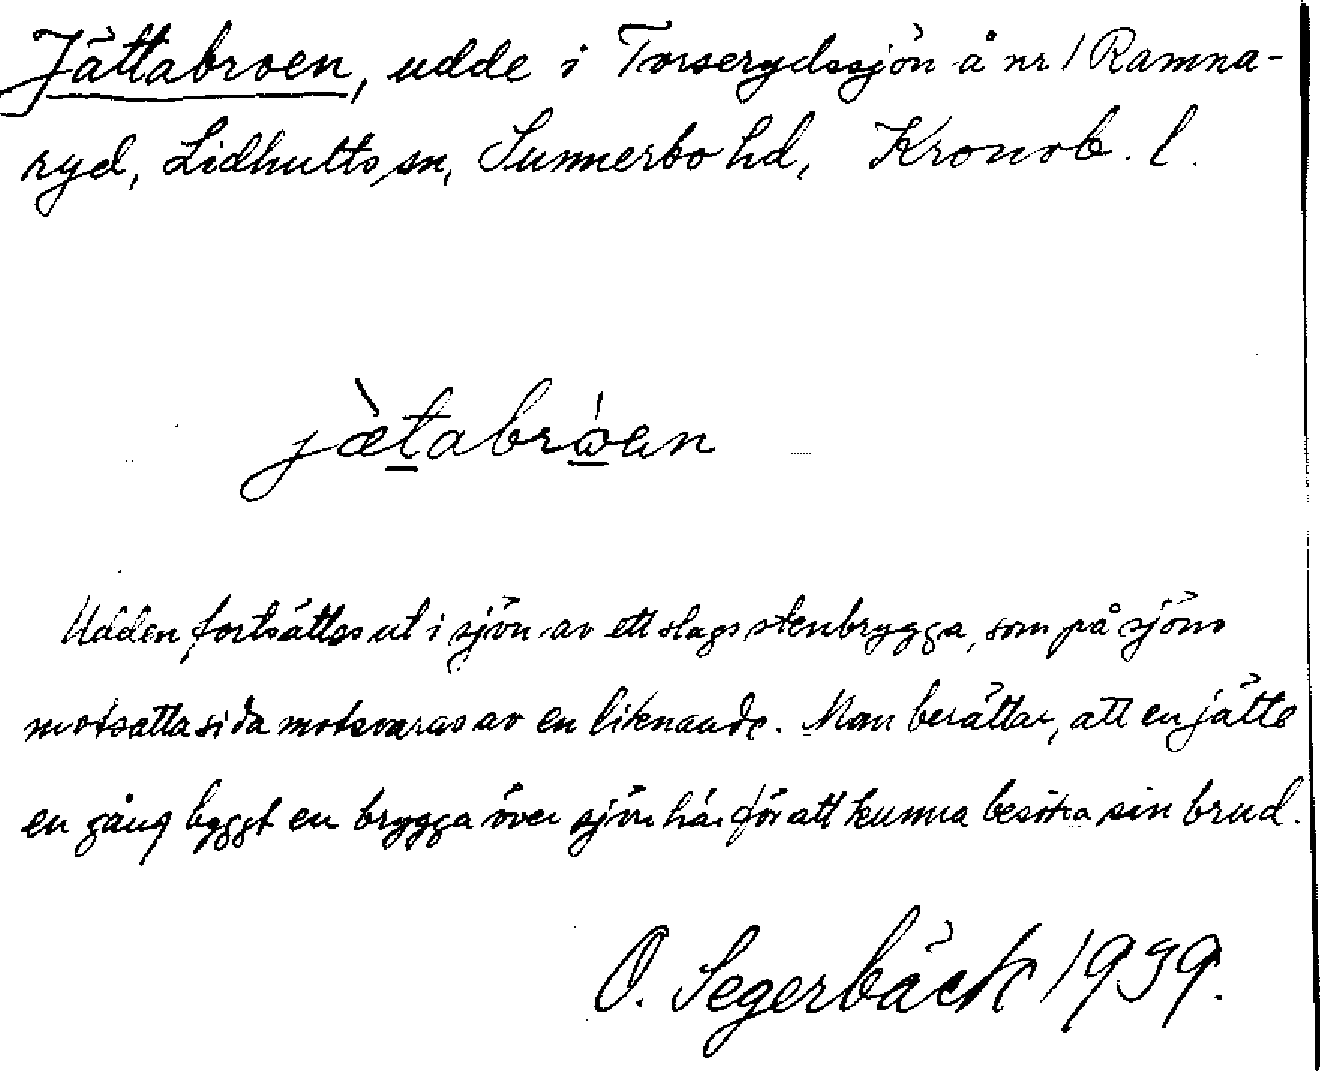 Jättabroen, udde i Torserydssjön å nr 1 Ramna-
ryd, Lidhults sn, Sunnerbo hd, Kronob. l.
jæ̀tabrȯ́en
Udden fortsättes ut i sjön av ett slags stenbrygga, som på sjöns
motsatta sida motsvaras av en liknande. Man berättar, att en jätte
en gång byggt en brygga över sjön här för att kunna besöka sin brud.
O. Segerbäck 1939.